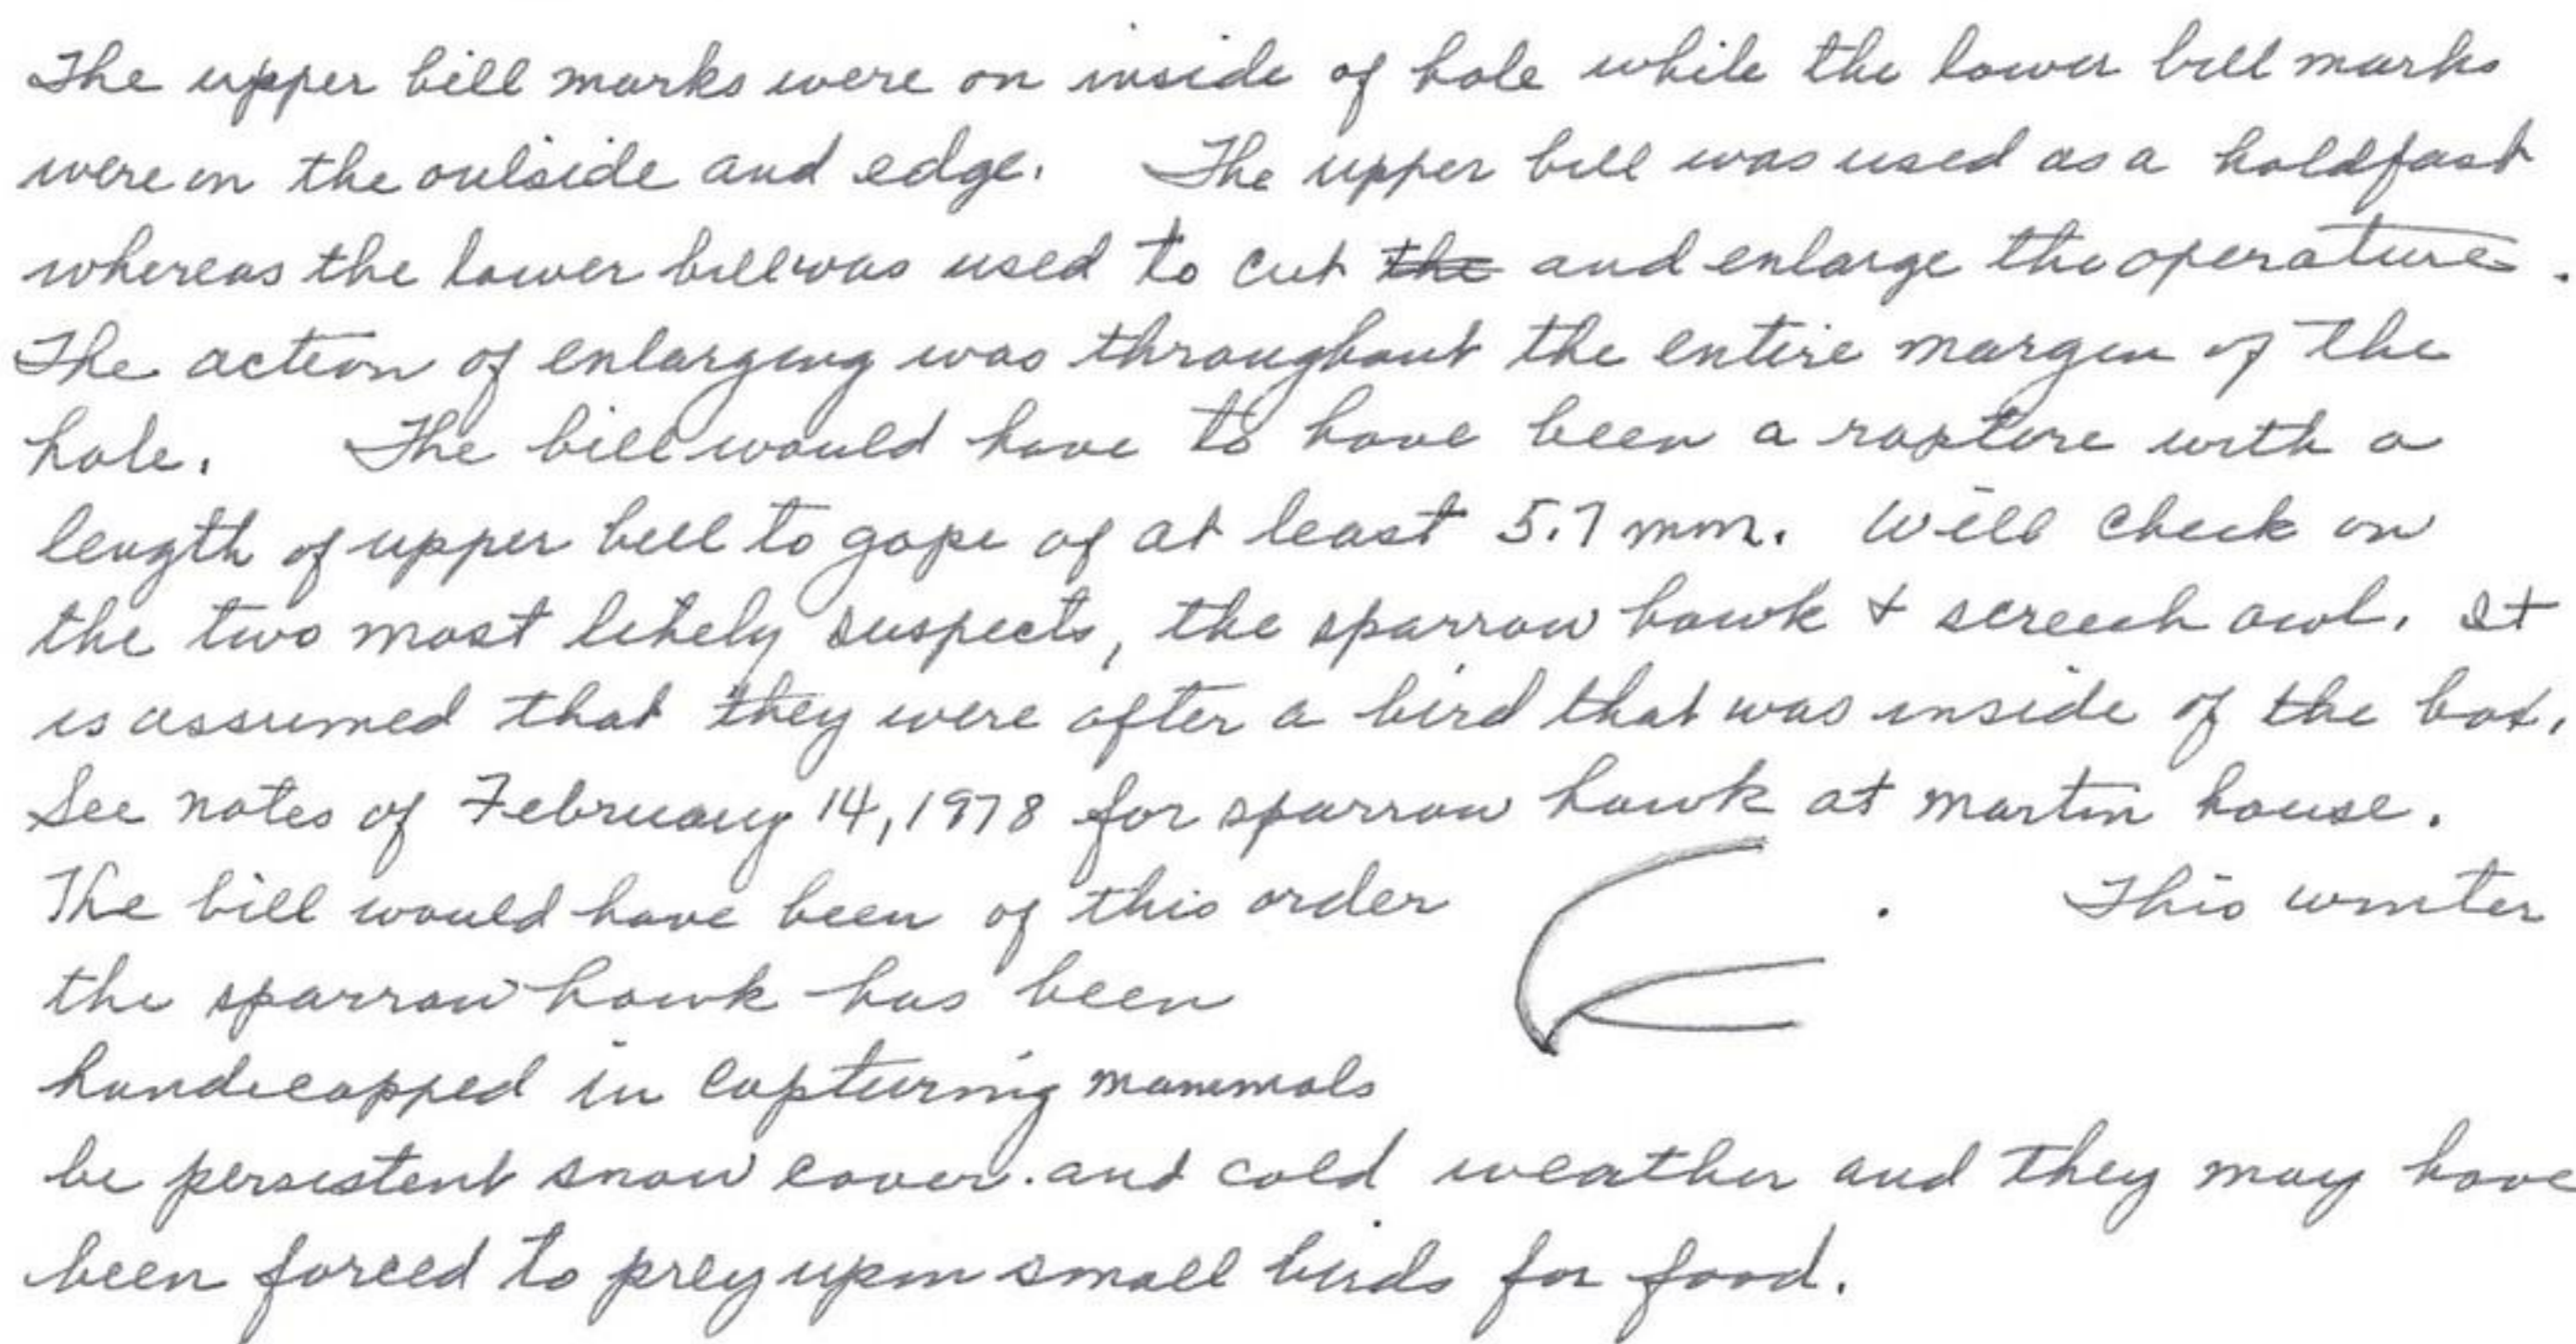 The upper bill marks were on inside of hole while the lower bill marks
were on the outside and edge. The upper bill was used as a holdfast
whereas the lower bill was used to cut the and enlarge the operature.
The action of enlarging was throughout the entire margin of the
hole. The bill would have to have been a rapture with a
length of upper bill to gape of at least 5.7 mm. Will check on
the two most likely suspects, the sparrow hawk & screech owl. It
is assumed that they were after a bird that was inside of the box.
See notes of February 14, 1978 for sparrow hawk at martin house.
The bill would have been of this order . This winter
the sparrow hawk has been
handicapped in capturing mammals
be persistent snow cover. and cold weather and they may have
been forced to prey upon small birds for food.